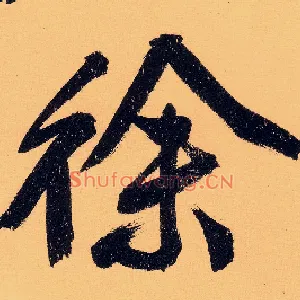 徐
Shufawang.CN